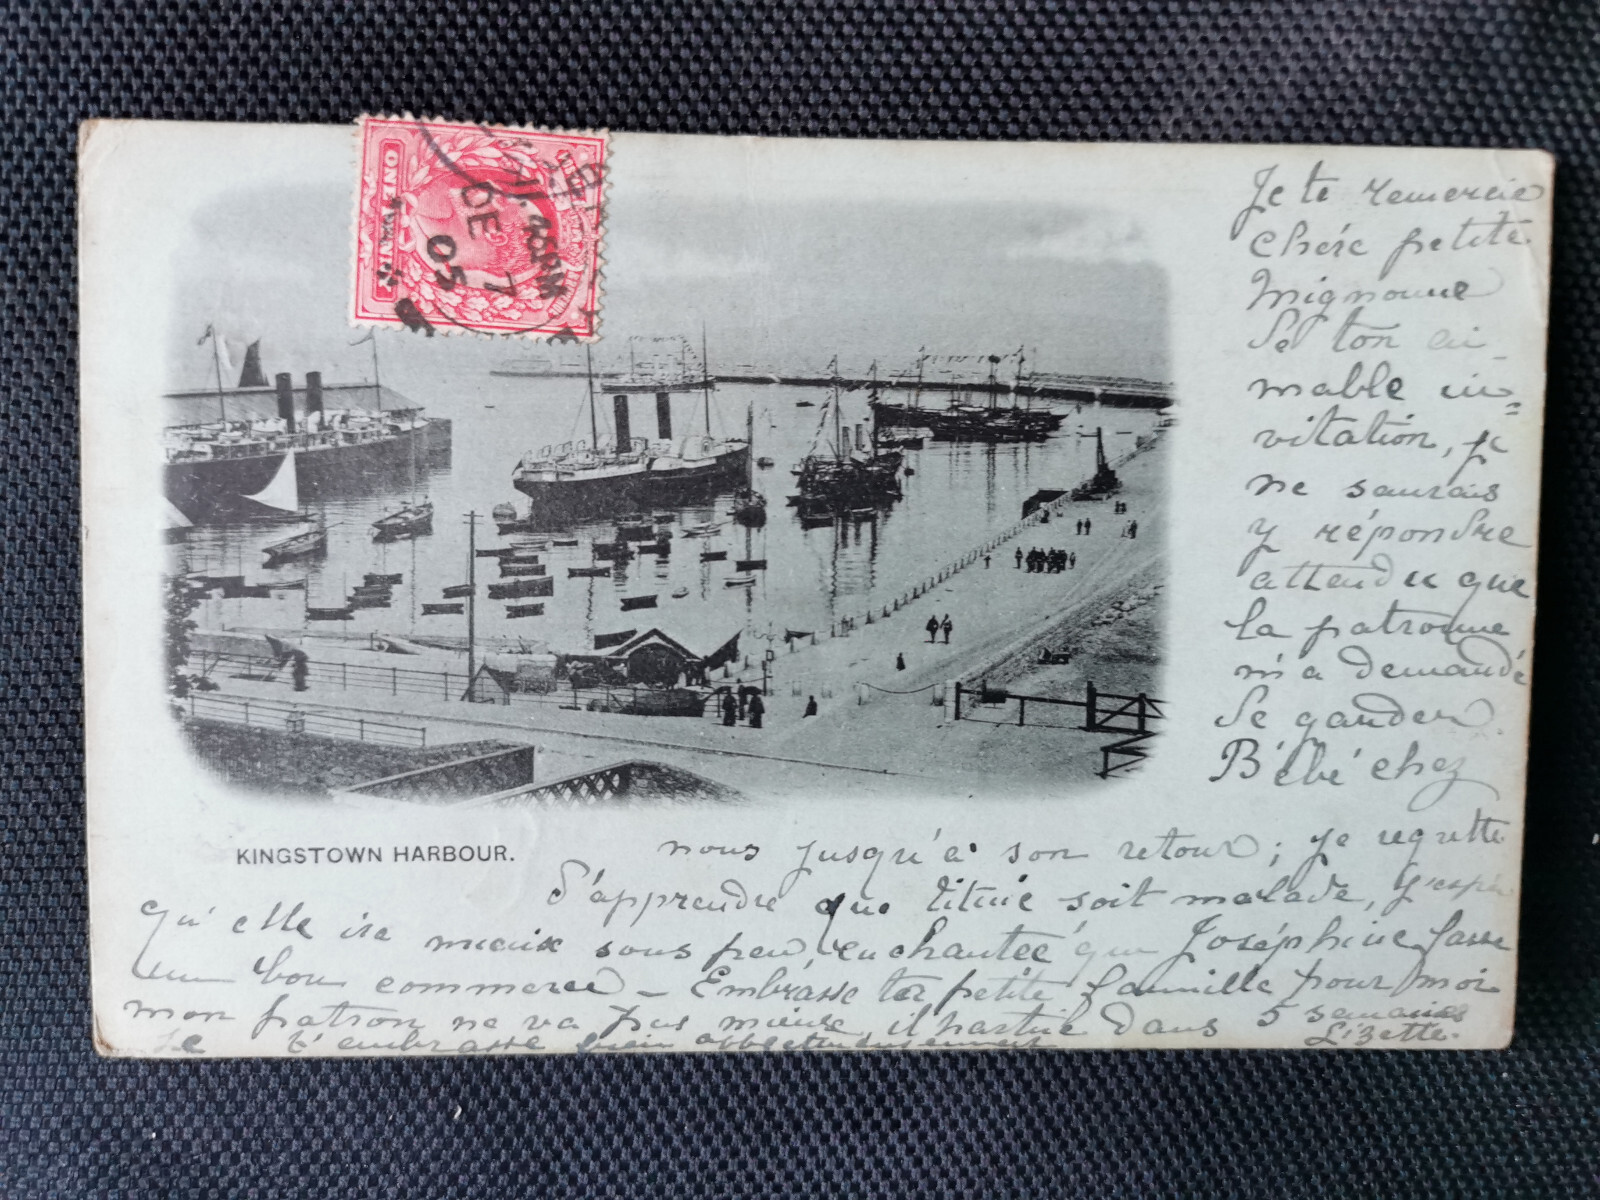 ONE PENNY
11.45PM
DE 7
05
Je te remercie
chére petite
Mignonne
de ton ai-
mable in=
vitation, je
ne saurais
y répondre
attendu que
la patronne
m'a demandé
de garder
Bébé chez
KINGSTOWN HARBOUR.
nous jusqu'à son retour; je regrette
d'apprendre que titine soit malade, j'espère
qu'elle ira mieux sous peu, enchantée que Joséphine fasse
un bon commerce - Embrasse ta petite famille pour moi
mon patron ne va pas mieux, il partira dans 5 semaines
Je t'embrasse bien affectueusement Lizette.